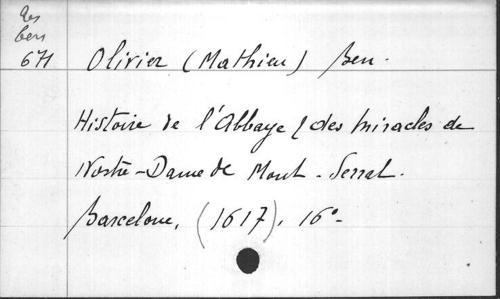 Res
bers
671
Olivier (Mathieu) Ben.
Histoire de l'Abbaye & des miracles de
Nostre-Dame de Mont-Serrat.
Barcelone, (1617), 16°-